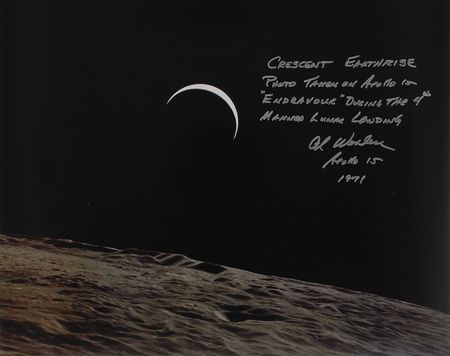 CRESCENT EARTHRISE
PHOTO TAKEN ON APOLLO 15
"ENDEAVOUR" DURING THE 4TH
MANNED LUNAR LANDING
Al Worden
APOLLO 15
1971